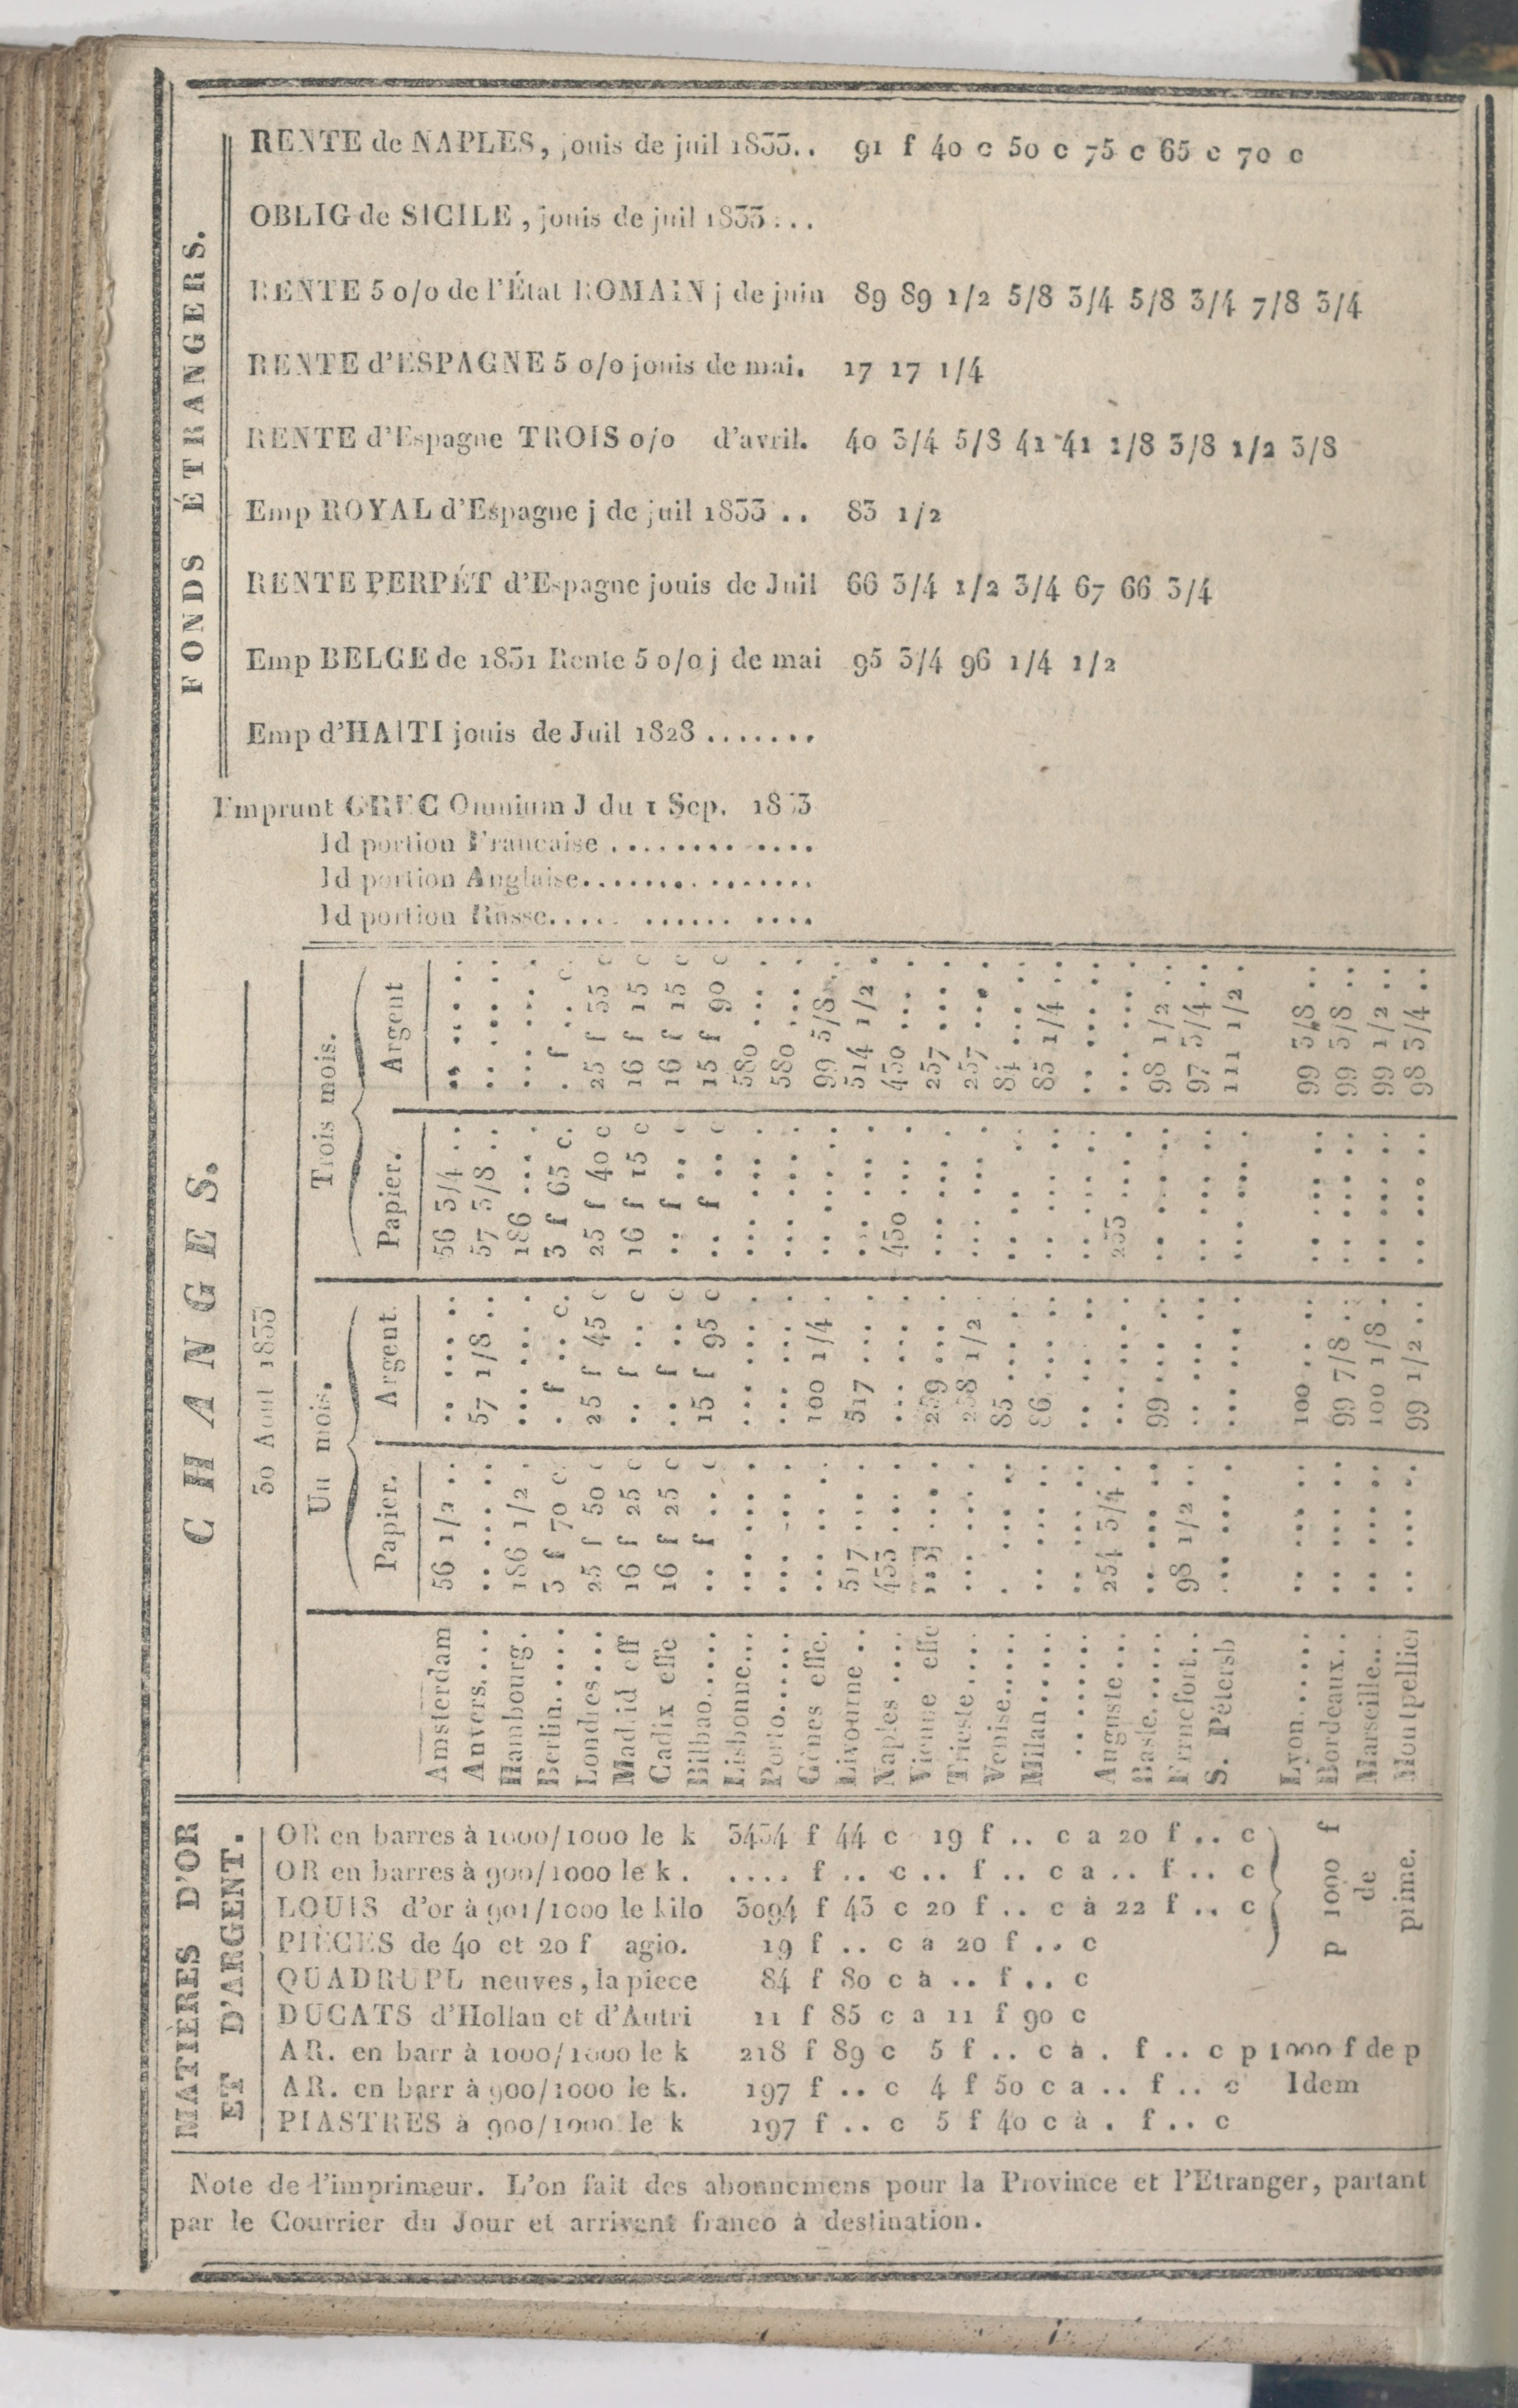 FONDS ÉTRANGERS.
RENTE de NAPLES, jouis de juil 1833.. 91 f 40 c 50 c 75 c 65 c 70 c
OBLIG de SICILE, jouis de juil 1833...
RENTE 5 o/o de l'État ROMAIN j de juin 89 89 1/2 5/8 3/4 5/8 3/4 7/8 3/4
RENTE d'ESPAGNE 5 o/o jouis de mai. 17 17 1/4
RENTE d'Espagne TROIS o/o d'avril. 40 3/4 5/8 41 41 1/8 3/8 1/2 3/8
Emp ROYAL d'Espagne j de juil 1833 .. 83 1/2
RENTE PERPÉT d'Espagne jouis de Juil 66 3/4 1/2 3/4 67 66 3/4
Emp BELGE de 1831 Rente 5 o/o j de mai 95 3/4 96 1/4 1/2
Emp d'HAITI jouis de Juil 1828 .......
Emprunt GREC Omnium J du 1 Sep. 1833
Id portion Francaise .............
Id portion Anglaise...............
Id portion Russe..... ...... ....
CHANGES.
30 Aout 1833
Un mois. Trois mois.
Papier. Argent. Papier. Argent
Amsterdam 56 1/2 .. .. ... .. 56 3/4 .. .. ... ..
Anvers.... .. ... .. 57 1/8 .. 57 3/8 .. .. ... ..
Hambourg. 186 1/2 . ... ... . 186 ... . ... ... .
Berlin..... 3 f 70 c . f .. c. 3 f 65 c. . f .. c.
Londres.... 25 f 50 c 25 f 45 c 25 f 40 c 25 f 35 c
Madrid eff 16 f 25 c .. f .. c 16 f 15 c 16 f 15 c
Cadix effc 16 f 25 c .. f .. c .. f .. c 16 f 15 c
Bilbao..... .. f .. c 15 f 95 c .. f .. c 15 f 90 c
Lisbonne... ... ... . ... ... . ... ... . 580 ... .
Porto...... ... ... . ... ... . ... ... . 580 ... .
Gènes effc. ... ... . 100 1/4 . .. ... . 99 5/8 .
Livourne .. 517 ... . 517 ... . ... ... . 514 1/2 .
Naples .... 433 ... . ... ... . 430 ... . 430 ... .
Vienne effc ... . 259 ... . ... ... . 257 ... .
Trieste .... ... ... . 258 1/2 . ... ... . 257 ... .
Venise..... . ... .. 85 ... . .. .. . 84 ... ..
Milan...... .. ... .. 86 ... . .. ... . 85 1/4 ..
........ .. ... .. .. ... .. .. ... .. .. ... ..
Auguste.... 254 3/4 . ... ... . 255 ... . ... ... .
Basle...... .. ... .. 99 ... .. .. ... .. 98 1/2 ..
Francfort.. 98 1/2 .. .. ... .. .. ... .. 97 3/4 ..
S. Pétersb ... ... . ... ... . ... ... . 111 1/2 .
Lyon...... .. ... .. 100 ... .. .. ... .. 99 3/8 ..
Bordeaux... .. ... .. 99 7/8 .. .. ... .. 99 3/8 ..
Marseille... .. ... .. 100 1/8 . .. ... .. 99 1/2 ..
Montpellier .. ... .. 99 1/2 .. .. ... .. 98 3/4 ..
MATIÈRES D'OR
ET D'ARGENT.
OR en barres à 1000/1000 le k 3434 f 44 c 19 f .. c a 20 f .. c
OR en barres à 900/1000 le k . .... f .. c .. f .. c a .. f .. c
LOUIS d'or à 901/1000 le kilo 3094 f 43 c 20 f .. c à 22 f .. c
PIÈCES de 40 et 20 f agio. 19 f .. c a 20 f .. c
p 1000 f
de
prime.
QUADRUPL neuves, la piece 84 f 80 c à .. f .. c
DUCATS d'Hollan et d'Autri 11 f 85 c a 11 f 90 c
AR. en barr à 1000/1000 le k 218 f 89 c 5 f .. c à . f .. c p 1000 f de p
AR. en barr à 900/1000 le k. 197 f .. c 4 f 50 c a .. f .. c Idem
PIASTRES à 900/1000 le k 197 f .. c 5 f 40 c à . f .. c
Note de l'imprimeur. L'on fait des abonnemens pour la Province et l'Etranger, partant
par le Courrier du Jour et arrivant franco à destination.